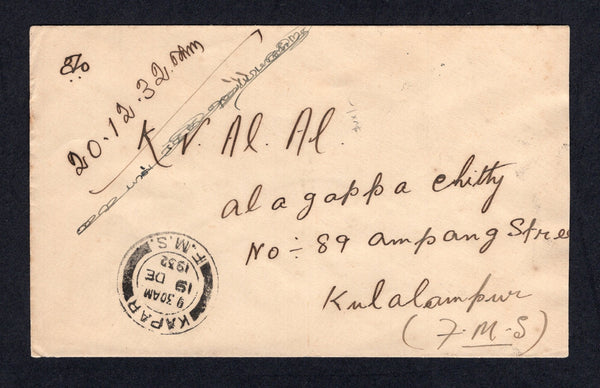 20.12.32.
K. V. Al. Al.
alagappa chitty
No ÷ 89 ampang Stre
Kulalampur
(F.M.S)
KAPAR F.M.S.
9 30AM
19 DE
1932